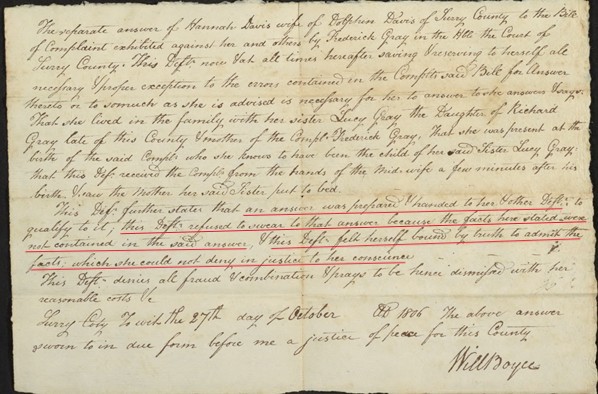 The separate answer of Hannah Davis wife of Dolphin Davis of Surry County to the Bill
of Complaint exhibited against her and others by Frederick Gray in the the Court of
Surry County. This Deft. now & at all times hereafter saving & reserving to herself all
necessary & proper exception to the errors contained in the Complts said Bill for Answer
thereto or to somuch as she is advised is necessary for her to answer to she answers & says:
That she lived in the family with her sister Lucy Gray the Daughter of Richard
Gray late of this County & mother of the Compl. Frederick Gray, That she was present at the
birth of the said Compl. who she knows to have been the child of her said sister Lucy Gray:
that this Def. received the Compl. from the hands of the Mid-wife a few minutes after his
birth & saw the Mother her said sister put to bed.
This Def. further states that an answer was prepared & handed to her & other Defts. to
qualify to it, this Deft. refused to swear to that answer because the facts here stated were
not contained in the said answer, & this Deft. felt herself bound by truth to admit the
facts: which she could not deny in justice to her conscience
This Deft. denies all fraud & combination & prays to be hence dismissed with her
reasonable costs &c
Surry Coty To wit the 27th day of October 1806 The above answer
sworn to in due form before me a justice of peace for this County
Will Boyce